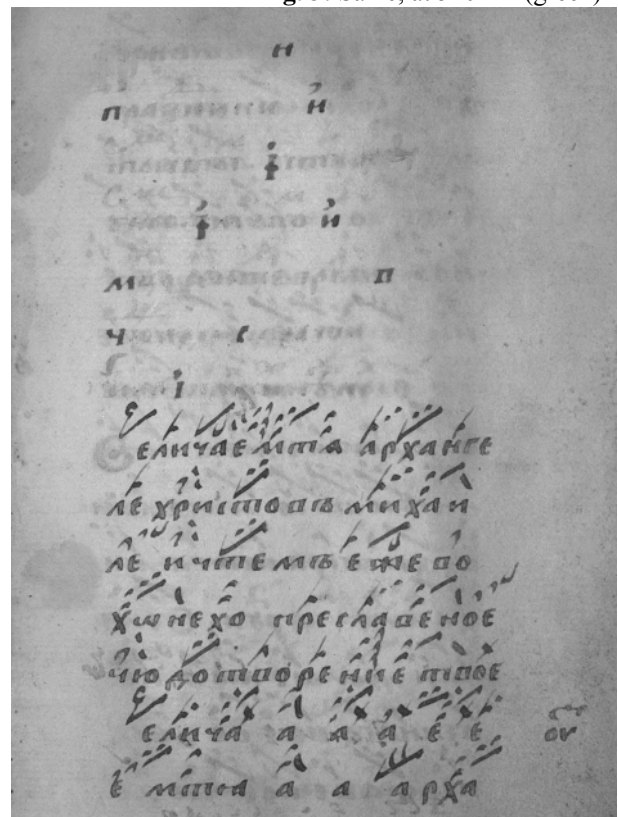 н
й
й
м
ч с
і
еличаемтѧ арханге
ле христовъ михаи
ле и чтемъ еже во
хѡнехо преславеное
чюдотворение твое
елича а а а е е оу
е мтѧ а а арха